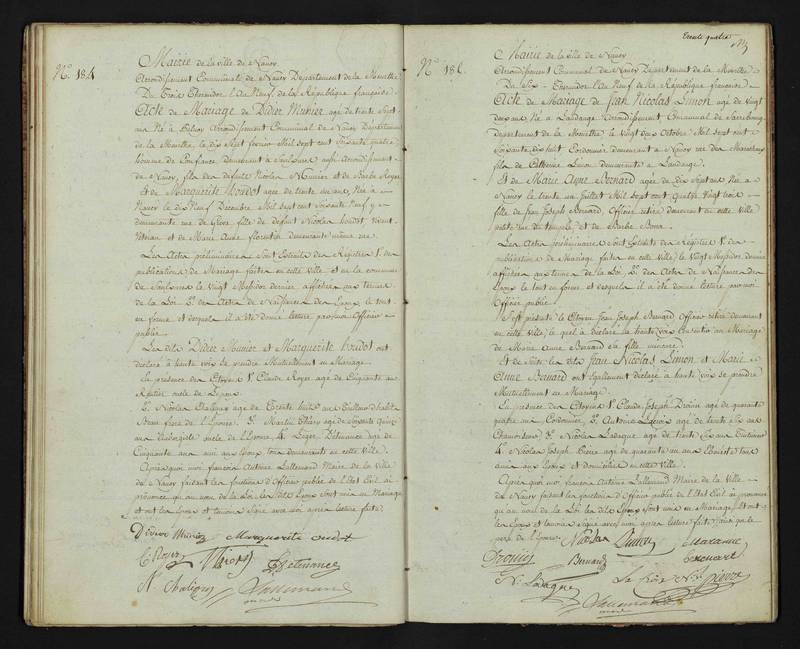 N.º 184
Mairie de la ville de Nancy
Arrondissement Communal de Nancy Département de la Meurthe
Du Trois Thermidor l'an Neuf de la République française
Acte de Mariage de Didier Munier agé de trente sept
ans Né à Communal de Nancy Département
de la Meurthe, le dix Sept fevrier Mil sept cent Soixante quatre
homme de Confiance demeurant à Saulxures susdit Arrondissement
de Nancy, fils des defunts Nicolas Munier et de Barbe Royer
Et de Marguerite houdot agée de trente un ans Née à
Nancy le dix Neuf Decembre Mil sept cent Soixante Neuf y
demeurante rue de Grève fille de defunt Nicolas houdot vivant
Vitrier et de Marie Anne florentin demeurante même rue
Les Actes préliminaires Sont Extraits des Régistres 1.º des
publications de Mariage faites en cette Ville et en la commune
de Saulxures le Vingt Messidor dernier affichées aux termes
de la Loi. 2.º des Actes de Naissance des Epoux le tout
en forme et desquels il a été donné lecture par moi Officier
public
Les dits Didier Munier et Marguerite houdot ont
declaré à haute voix se prendre Mutuellement en Mariage
En presence des Citoyens 1.º Claude Royer agé de Cinquante ans
Rentier oncle de l'Epoux
2.º Nicolas Chaligny age de Trente huit ans Tailleur d'habits
frere de l'Epouse. 3.º Martin Thiery agé de Soixante Quinze
ans oncle de l'Epouse, 4.º Leger Détenance agé de
Cinquante ans ami aux Epoux tous demeurants en cette Ville
Après quoi moi françois Antoine Lallemand Maire de la Ville
de Nancy faisant les fonctions d'Officier public de l'Etat Civil ai
prononcé qu'au nom de la Loi les dits Epoux Sont unis en Mariage
et ont les Epoux et temoins Signé avec moi apres lecture faite
Didier Munier Marguerite oudot
C. Royer Détenance
N. Chaligny Lallemand
maire
Trente quatre
N.º 18
Mairie de la ville de Nancy
Arrondissement Communal de Nancy Département de la Meurthe
Du Six Thermidor l'an Neuf de la République française
Acte de Mariage de Jean Nicolas Limon agé de Vingt
deux ans Né à Landange Arrondissement Communal de Sarrebourg
département de la Meurthe le Vingt deux Octobre Mil sept cent
Soixante dix huit Cordonnier demeurant à Nancy rue des Marechaux
fils de Catherine Limon demeurante à Landange
Et de Marie Anne Bernard agée de dix Sept ans Née à
Nancy le trente un Juillet Mil Sept cent Quatre Vingt trois
fille de Jean Joseph Bernard, Officier retiré demeurant en cette Ville
petite rue du temple, et de Barbe
Les Actes préliminaires Sont Extraits des Régistres 1.º des
publications de Mariage faites en cette Ville le Vingt Messidor dernier
affichées aux termes de la Loi. 2.º des Actes de Naissance des
Epoux le tout en forme et desquels il a été donné lecture par moi
Officier public
S'est présenté le Citoyen Jean Joseph Bernard Officier retiré demeurant
en cette Ville, lequel a declaré à haute voix Consentir au Mariage
de Marie Anne Bernard sa fille mineure
Et de Suite les dits Jean Nicolas Limon et Marie
Anne Bernard ont également declaré à haute voix se prendre
Mutuellement en Mariage
En presence des Citoyens 1.º Claude Joseph Drouin agé de quarante
quatre ans Cordonnier, 2.º Antoine agé de trente Six ans
Chamoiseur 3.º Nicolas Ladague agé de trente Six ans
4.º Nicolas Joseph Pierre agé de quarante un ans tous
amis aux Epoux et domiciliés en cette Ville
Après quoi moi françois Antoine Lallemand Maire de la Ville
de Nancy faisant les fonctions d'Officier public de l'Etat Civil ai prononcé
qu'au nom de la Loi les dits Epoux Sont unis en Mariage, Et ont
les Epoux et temoins Signé avec moi apres lecture faite, ainsi que le
pere de l'Epouse. Nicolas
Drouin Bernard
N. Ladague Pierre
Lallemand
maire